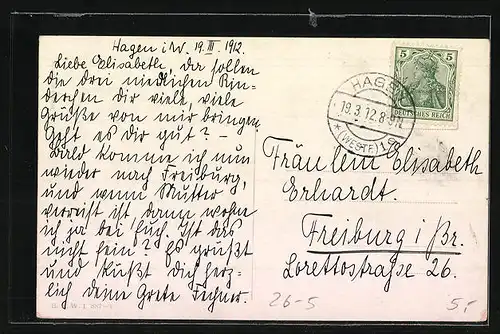 Hagen i. W. 19. III. 1912.
Liebe Elisabeth, da sollen
die drei niedlichen Kin-
derchen dir viele, viele
Grüße von mir bringen.
Geht es dir gut? –
Bald komme ich nun
wieder nach Freiburg,
und wenn Mutter
verreist ist dann wohn
ich ja bei Euch. Ist das
nicht fein? Es grüßt
und küßt dich herz-
lich deine Grete
5 5
DEUTSCHES REICH
HAGEN
19.3.12.8-9N.
* (WESTF.) 1
Fräulein Elisabeth
Erhardt.
Freiburg i/Br.
Lorettostraße 26.
26-5
5,-